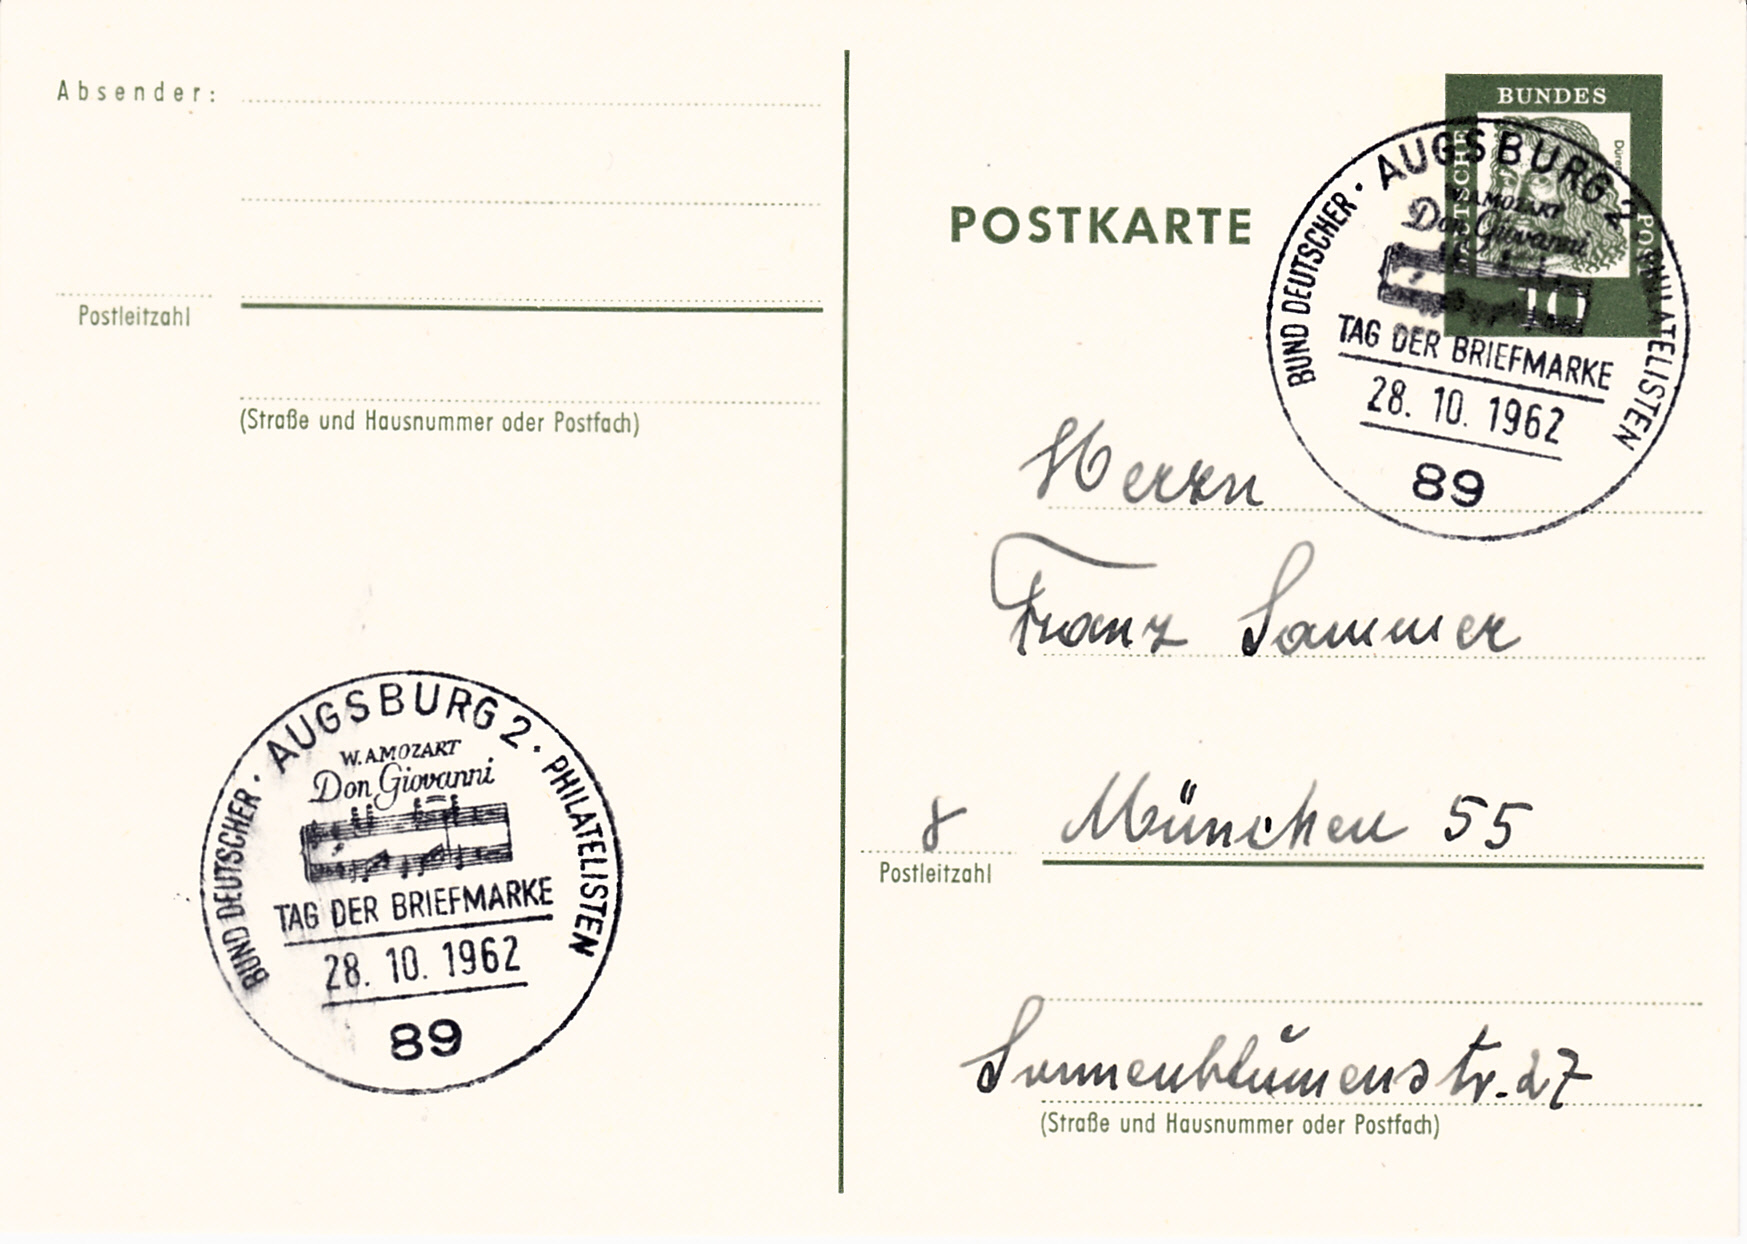 Absender:
Postleitzahl
(Straße und Hausnummer oder Postfach)
AUGSBURG 2 · PHILATELISTEN
BUND DEUTSCHER ·
W.A.MOZART
Don Giovanni
TAG DER BRIEFMARKE
28. 10. 1962
89
BUNDES
DEUTSCHE
Dürer
POST
10
POSTKARTE
BUND DEUTSCHER · AUGSBURG 2 · PHILATELISTEN
W.A.MOZART
Don Giovanni
TAG DER BRIEFMARKE
28. 10. 1962
89
Herrn
Franz Sammer
8 München 55
Postleitzahl
Sonnenblumenstr. 27
(Straße und Hausnummer oder Postfach)